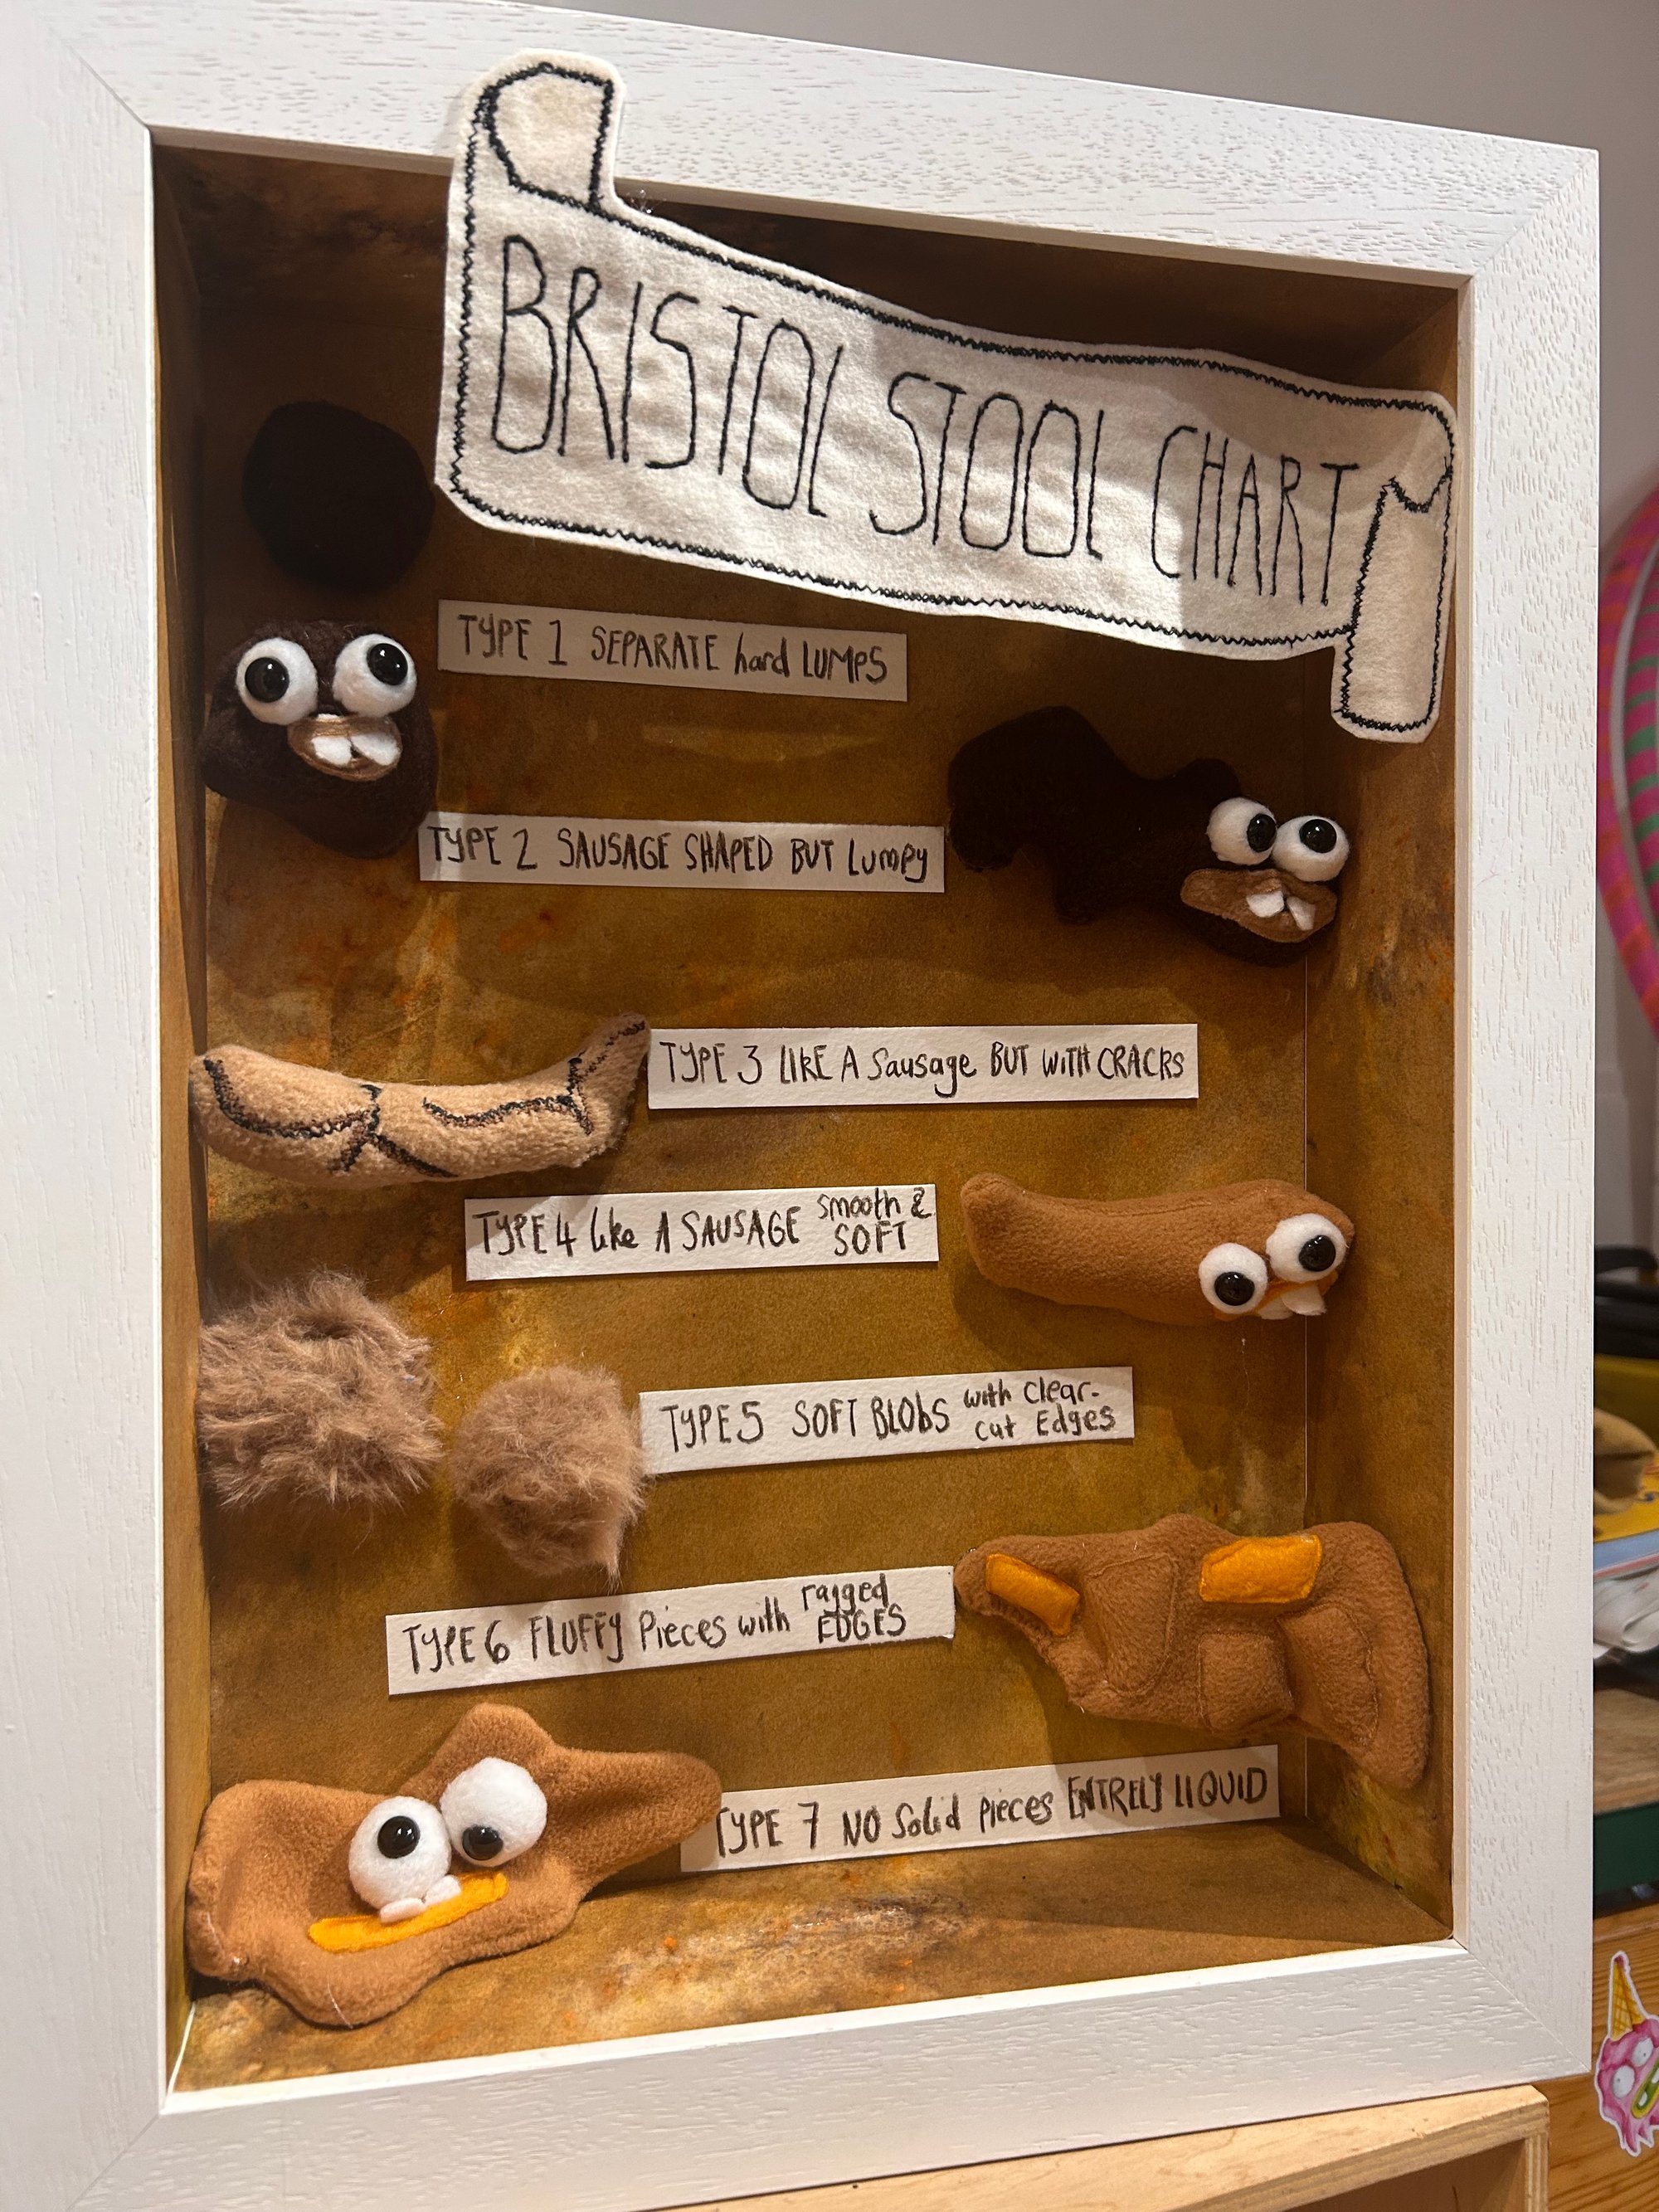 BRISTOL STOOL CHART
TYPE 1 SEPARATE hard LUMPS
TYPE 2 SAUSAGE SHAPED BUT Lumpy
TYPE 3 LIKE A Sausage BUT WITH CRACKS
TYPE 4 like A SAUSAGE smooth &
SOFT
TYPE 5 SOFT BLObS with Clear-
cut Edges
TYPE 6 FLUFFY Pieces with ragged
EDGES
TYPE 7 NO Solid pieces ENTRELY LIQUID